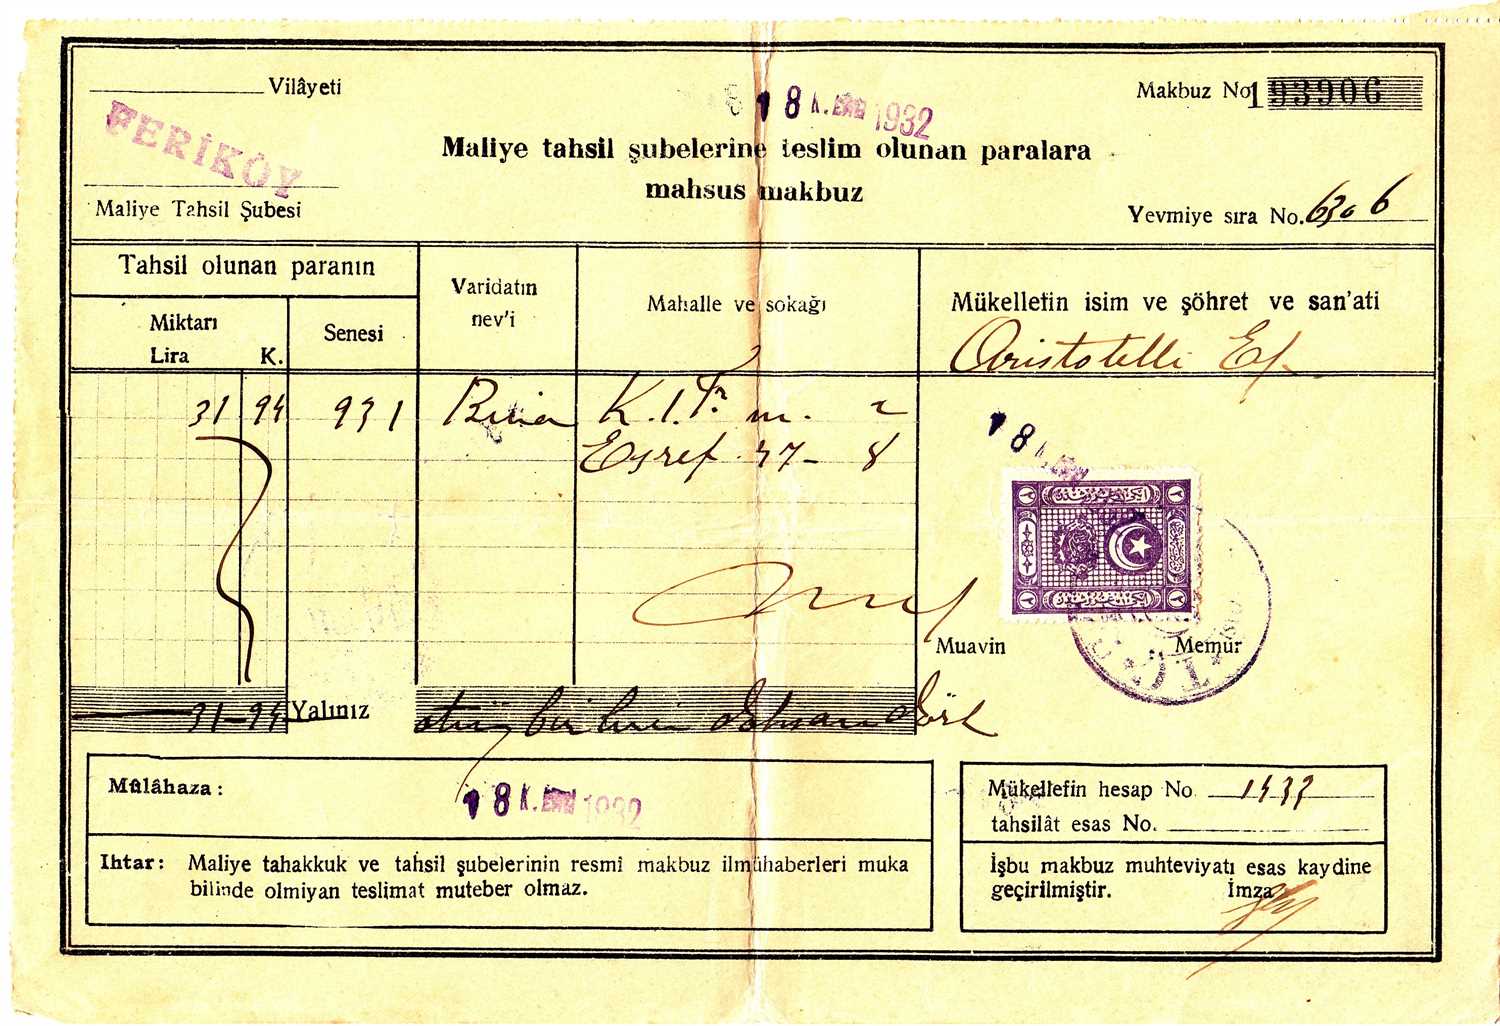 Vilâyeti
FERİKÖY
Maliye Tahsil Şubesi
18 K. 1932
Maliye tahsil şubelerine teslim olunan paralara
mahsus makbuz
Makbuz No 193906
Yevmiye sıra No. 6306
Tahsil olunan paranın
Miktarı
Lira K.
Senesi
Varidatın
nev'i
Mahalle ve sokağı
Mükellefin isim ve şöhret ve san'ati
Aristotelli Ef.
31 94 931 Bina K. I. Fr. m. 2
Eşref 37- 8
18 K.
Muavin
Memur
T.C.
31-94 Yalınız otuz bir lira doksan dört
Mülâhaza :
18 K. 1932
Ihtar: Maliye tahakkuk ve tahsil şubelerinin resmî makbuz ilmühaberleri muka
bilinde olmiyan teslimat muteber olmaz.
Mükellefin hesap No 1433
tahsilât esas No.
İşbu makbuz muhteviyatı esas kaydine
geçirilmiştir. İmza